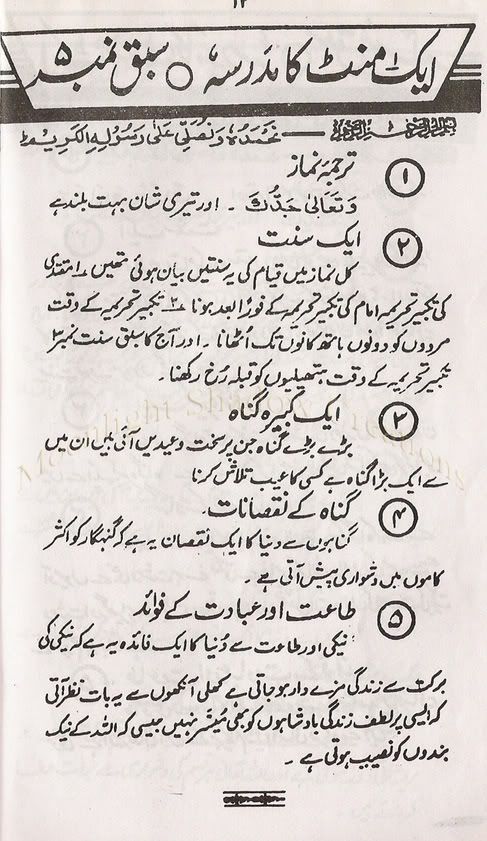 ۱۲
ایک منٹ کا مدرسہ ○ سبق نمبر ۵
بسم اللہ الرحمن الرحیم — نَحْمَدُہٗ وَنُصَلِّیْ عَلٰی رَسُوْلِہِ الْکَرِیْمِ ط
۱ ترجمۂ نماز
وَتَعَالٰی جَدُّكَ ۔ اور تیری شان بہت بلند ہے
۲ ایک سنت
کل نماز میں قیام کی یہ سنتیں بیان ہوئی تھیں ۱؎ مقتدی
کی تکبیر تحریمہ امام کی تکبیر تحریمہ کے فورًا بعد ہونا ۲؎ تکبیر تحریمہ کے وقت
مردوں کو دونوں ہاتھ کانوں تک اُٹھانا ۔ اور آج کا سبق سنت نمبر ۳
تکبیر تحریمہ کے وقت ہتھیلیوں کو قبلہ رُخ رکھنا ۔
۳ ایک کبیرہ گناہ
بڑے بڑے گناہ جن پر سخت وعیدیں آئی ہیں ان میں
سے ایک بڑا گناہ ہے کسی کا عیب تلاش کرنا
۴ گناہ کے نقصانات ۔
گناہوں سے دنیا کا ایک نقصان یہ ہے کہ گنہگار کو اکثر
کاموں میں دشواری پیش آتی ہے ۔
۵ طاعت اور عبادت کے فوائد
نیکی اور طاعت سے دُنیا کا ایک فائدہ یہ ہے کہ نیکی کی
برکت سے زندگی مزے دار ہو جاتی ہے کھلی آنکھوں سے یہ بات نظر آتی
کہ ایسی پر لطف زندگی بادشاہوں کو بھی میسّر نہیں جیسی کہ اللہ کے نیک
بندوں کو نصیب ہوتی ہے ۔
Moonlight Shadow Creations